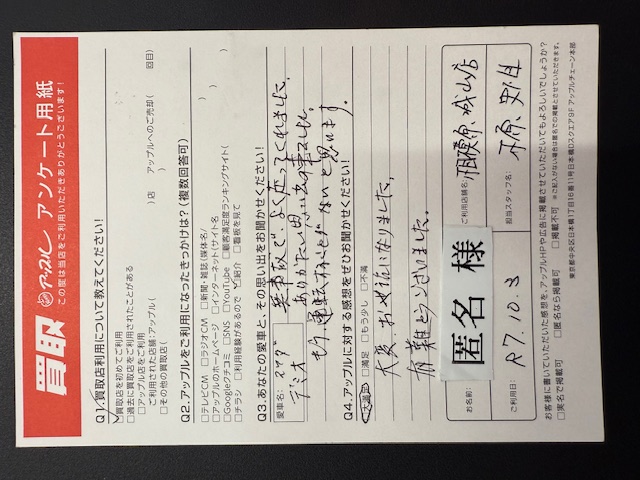 買取 アップル アンケート用紙
この度は当店をご利用いただきありがとうございます!
Q1.買取店利用について教えてください!
□買取店を初めてご利用
□過去に買取店をご利用されたことがある
□アップル店をご利用
ご利用された店舗:アップル( )店 アップルへのご売却( 回目)
□その他の買取店( )
Q2.アップルをご利用になったきっかけは?(複数回答可)
□テレビCM □ラジオCM □新聞・雑誌(媒体名/ )
□アップルのホームページ □インターネット(サイト名 )
□Googleクチコミ □SNS □YouTube □顧客満足度ランキングサイト( )
□チラシ □利用経験があるので □紹介 □看板を見て
Q3.あなたの愛車と、その思い出をお聞かせください!
愛車名:マツダ
デミオ
乗車数で、よく走ってくれました。
ありがたい思い出来ました。
もう、運転することもないと思います。
Q4.アップルに対する感想をぜひお聞かせください!
□大満足 □満足 □もう少し □不満
大変、お世話になりました。
有難とうございました。
お名前: 匿名 様
ご利用店舗名: 相模原、城山店
ご利用日: R7.10.3
担当スタッフ名:
お客様に書いていただいた感想を、アップルHPや広告に掲載させていただいてもよろしいでしょうか?
□実名で掲載可 □匿名なら掲載可 □掲載不可 ※ご記入がない場合は匿名での掲載とさせていただきます。
東京都中央区日本橋1丁目16番11号日本橋Dスクエア9F アップルチェーン本部